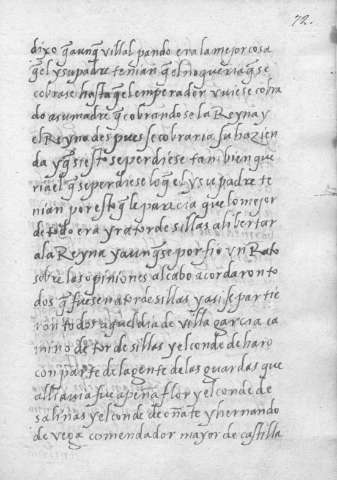 72.
dixo q̃ aunq̃ villalpando era la mejor cosa
q̃ el y su padre tenian q̃ el no queria q̃ se
cobrase hasta q̃ el emperador vuiese cobra
do a su madre q̃ cobrandose la Reyna y
el Reyno despues se cobraria su hazien
da y q̃ si esto se perdiese tambien que
ria el q̃ se perdiese lo q̃ el y su padre te
nian por esto q̃ le parecia que lo mejor
de todo era yr a tordesillas a libertar
a la Reyna y aunq̃ se porfio vn Rato
sobre las opiniones al cabo acordaron to
dos q̃ fuesen a tordesillas y asi se partie
ron todos aquel dia de villa garcia ca
mino de tordesillas y el conde de haro
con parte de la gente de las guardas que
alli auia fue a peña flor y el conde de
salinas y el conde de oñate y hernando
de vega comendador mayor de castilla